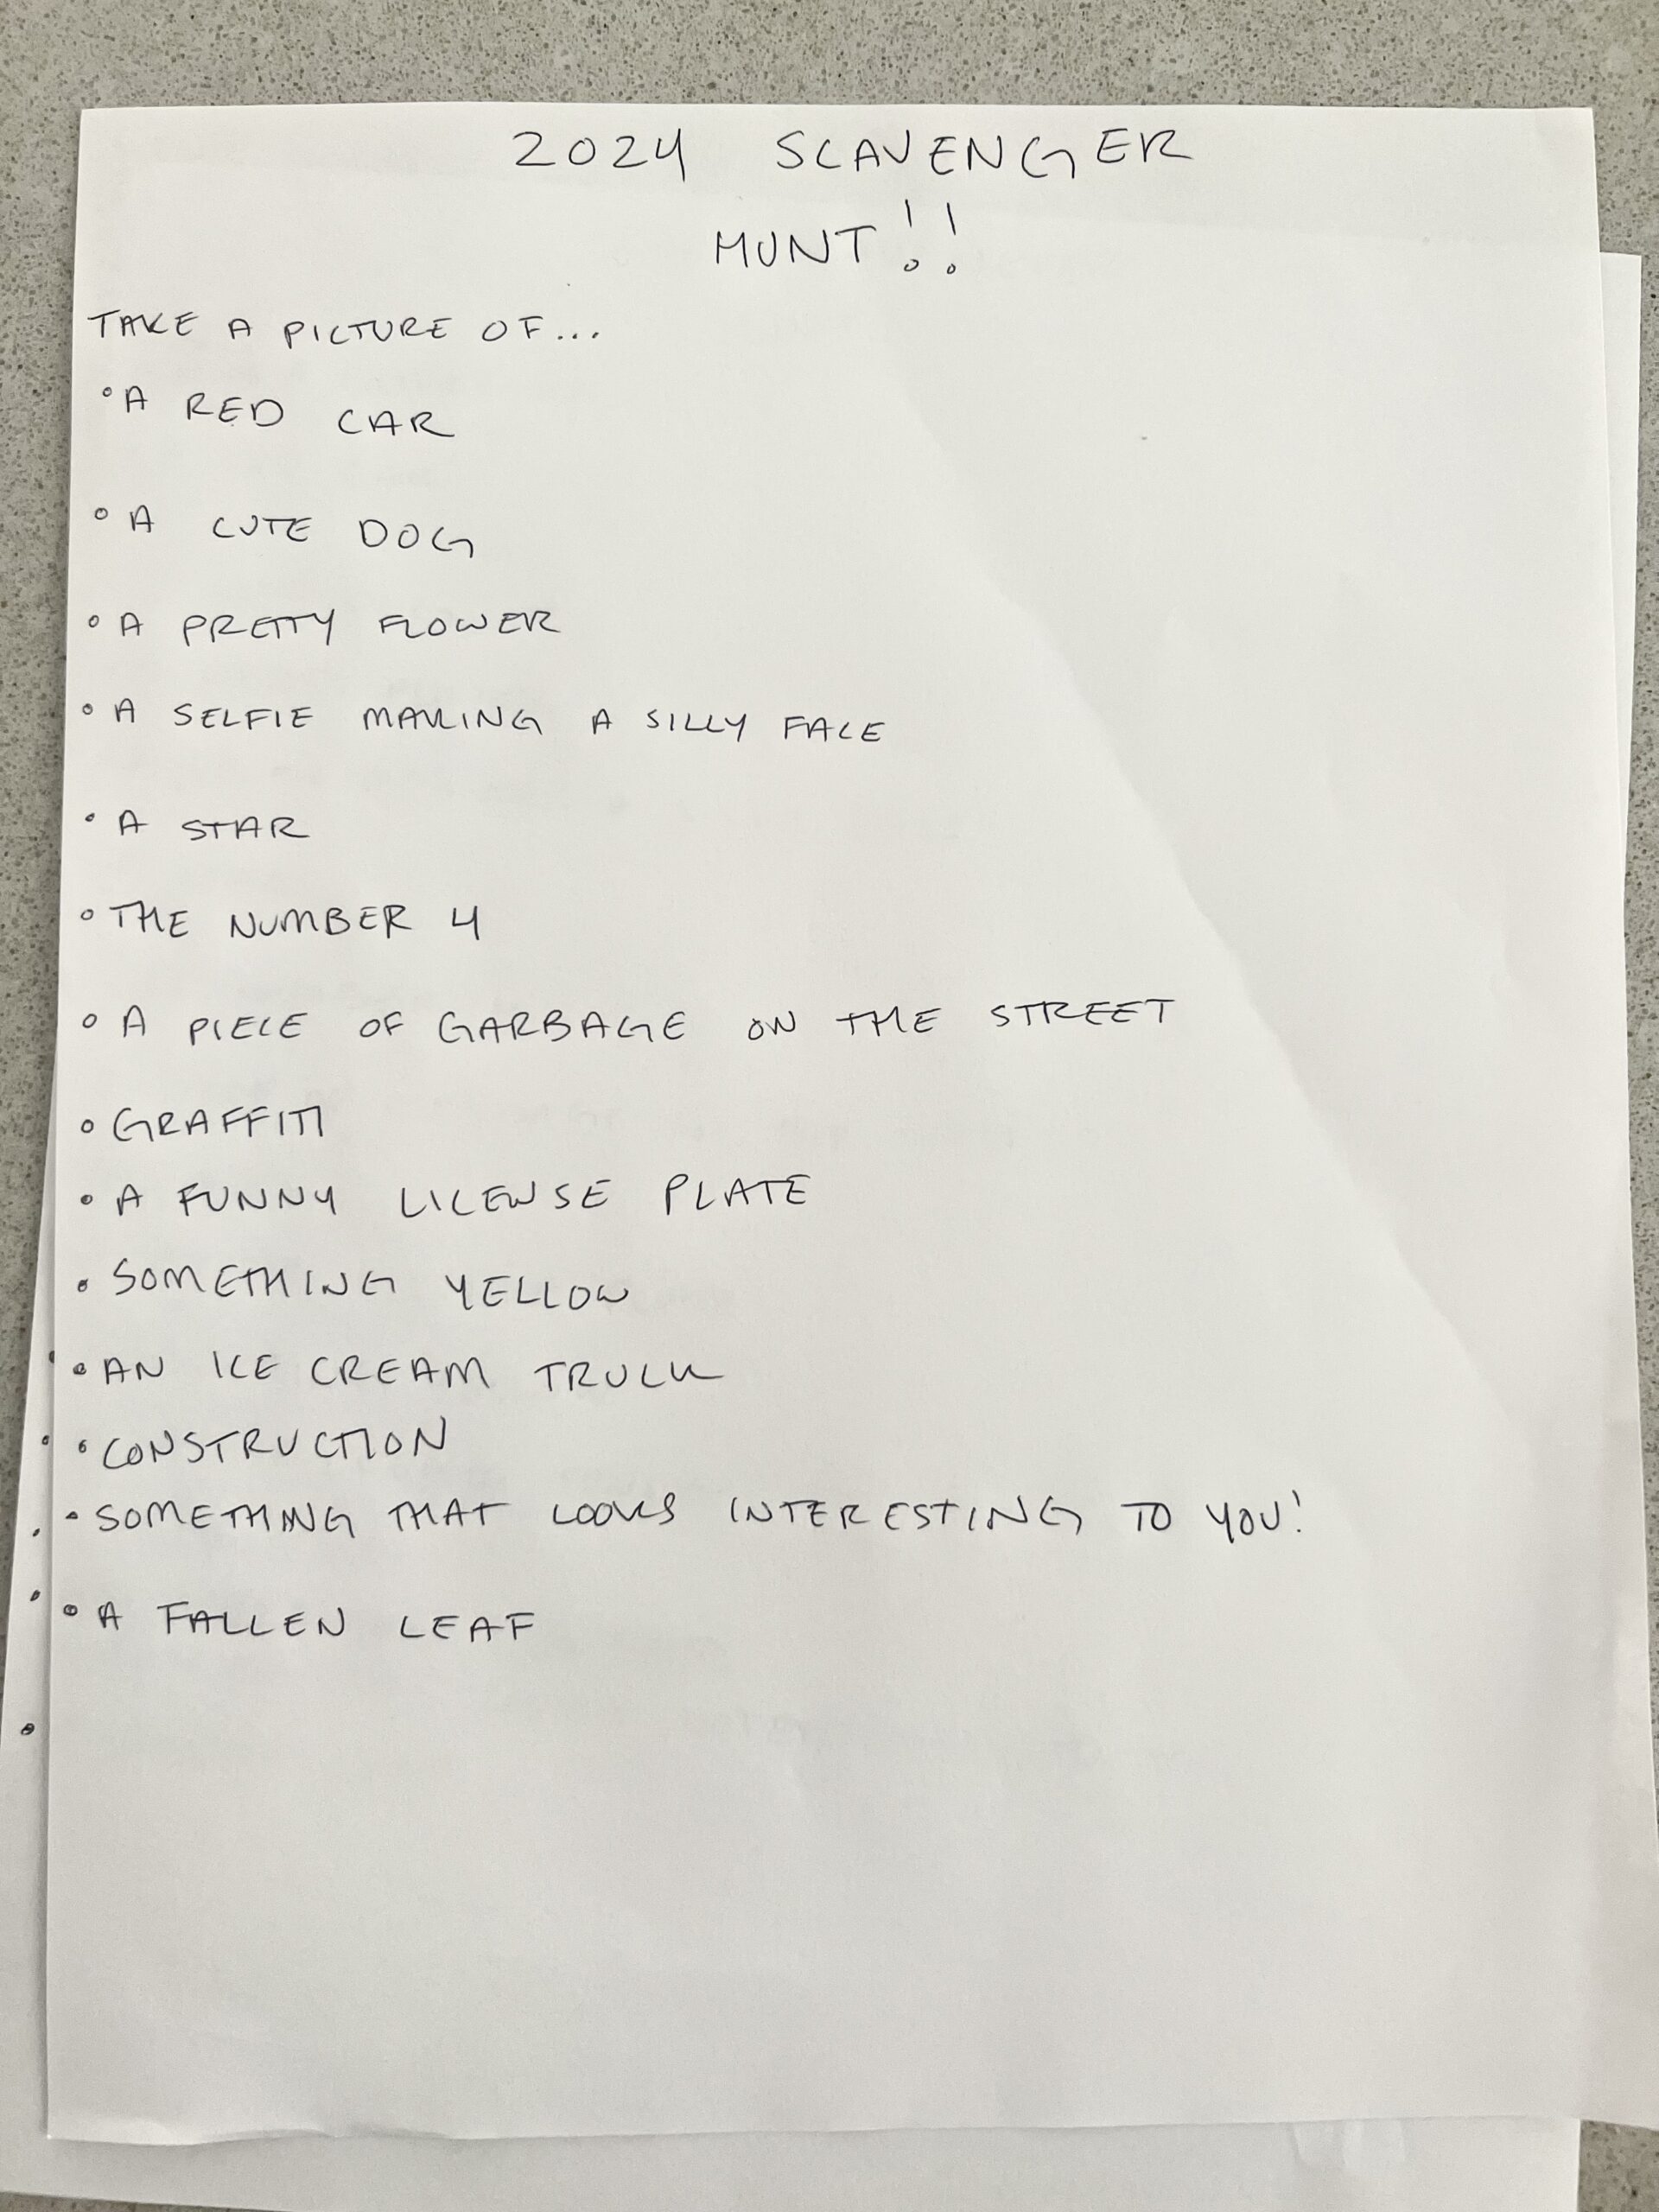 2024 SCAVENGER
HUNT!!
TAKE A PICTURE OF...
• A RED CAR
• A CUTE DOG
• A PRETTY FLOWER
• A SELFIE MAKING A SILLY FACE
• A STAR
• THE NUMBER 4
• A PIECE OF GARBAGE ON THE STREET
• GRAFFITI
• A FUNNY LICENSE PLATE
• SOMETHING YELLOW
• AN ICE CREAM TRUCK
• CONSTRUCTION
• SOMETHING THAT LOOKS INTERESTING TO YOU!
• A FALLEN LEAF